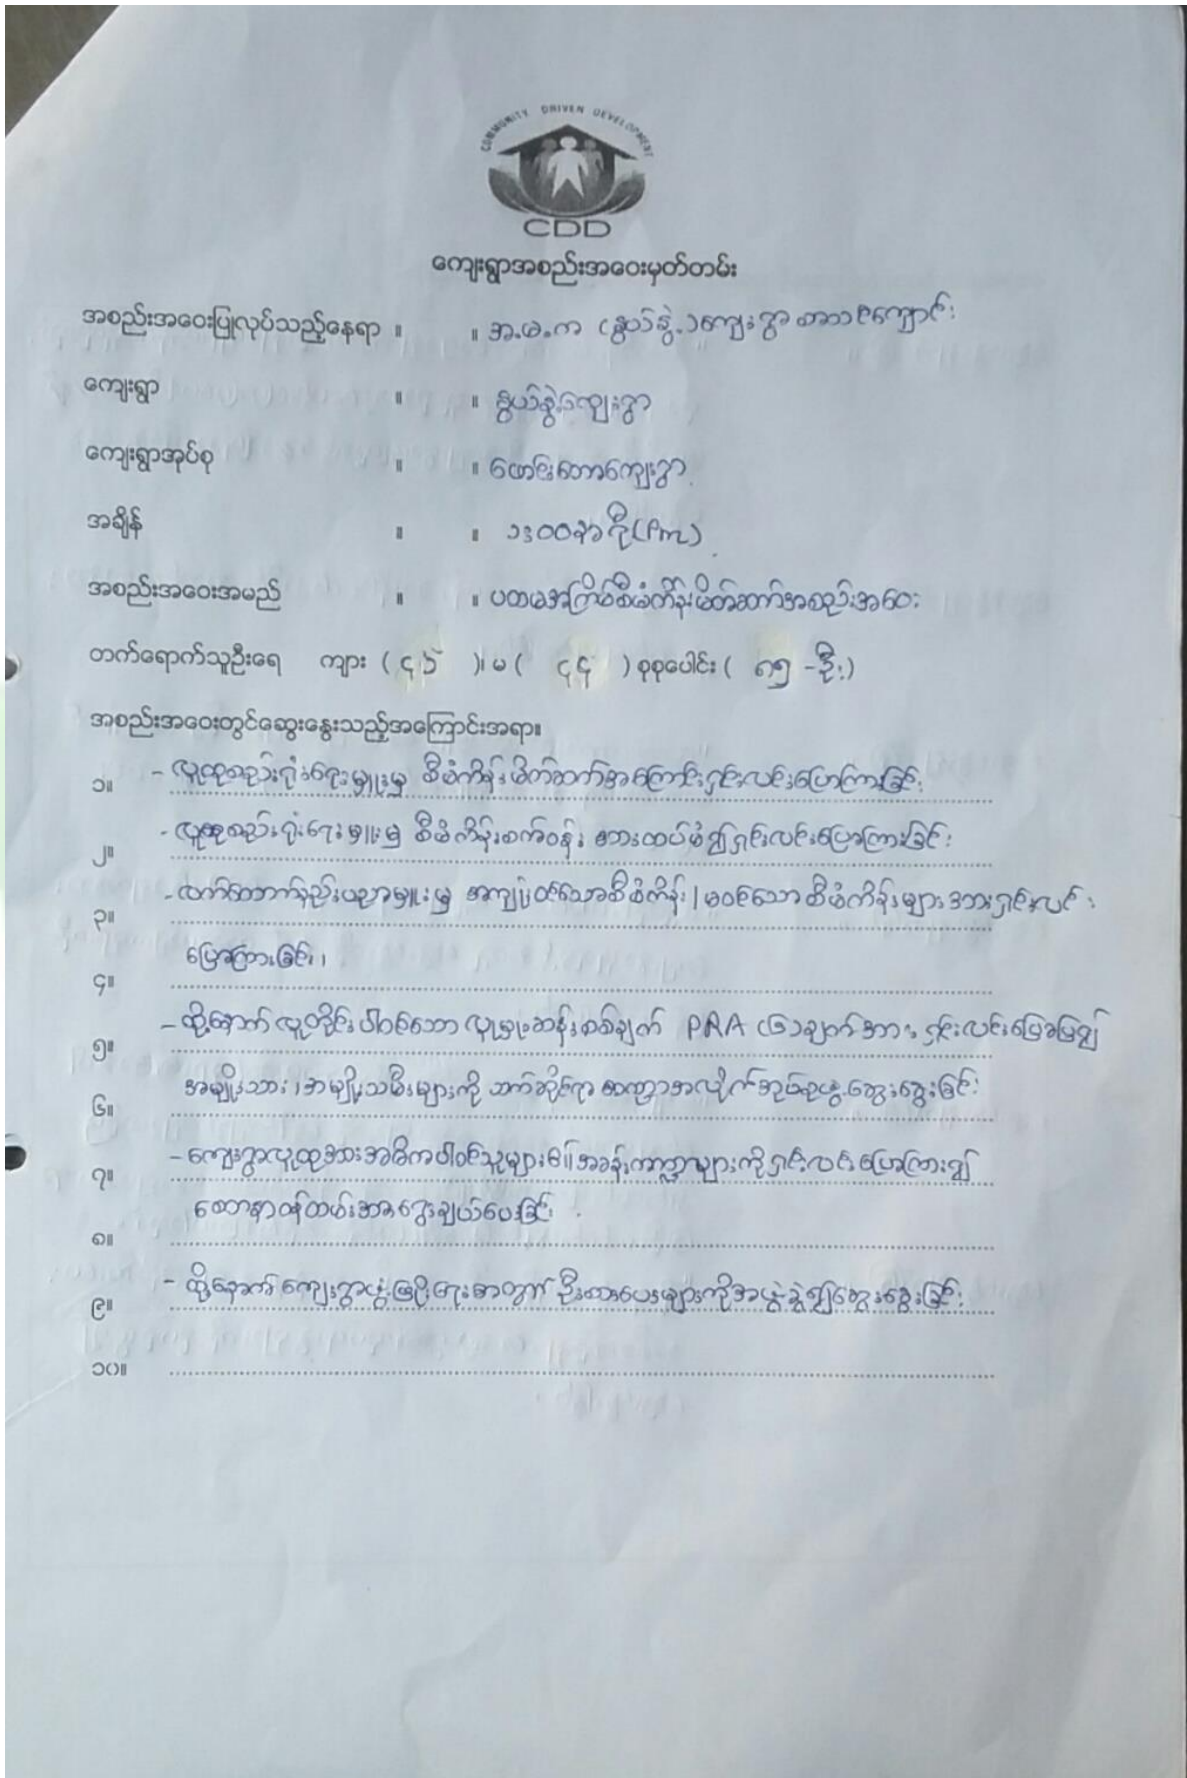 COMMUNITY DRIVEN DEVELOPMENT
CDD
ကျေးရွာအစည်းအဝေးမှတ်တမ်း
အစည်းအဝေးပြုလုပ်သည့်နေရာ ။ ။ အ.မ.က (နွယ်နွဲ့)ကျေးရွာ စာသင်ကျောင်း
ကျေးရွာ ။ ။ နွယ်နွဲ့ကျေးရွာ
ကျေးရွာအုပ်စု ။ ။ ဖောင်းတောကျေးရွာ
အချိန် ။ ။ ၁း၀၀နာရီ(Pm)
အစည်းအဝေးအမည် ။ ။ ပထမအကြိမ်စီမံကိန်းမိတ်ဆက်အစည်းအဝေး
တက်ရောက်သူဦးရေ ကျား ( ၄၁ )၊ မ ( ၄၄ ) စုစုပေါင်း ( ၈၅ -ဦး)
အစည်းအဝေးတွင်ဆွေးနွေးသည့်အကြောင်းအရာ။
၁။ - လူထုစည်းရုံးရေးမှူးမှ စီမံကိန်းမိတ်ဆက်အကြောင်းရှင်းလင်းပြောကြားခြင်း
၂။ - လူထုစည်းရုံးရေးမှူးမှ စီမံကိန်းစက်ဝန်း အားထပ်မံ၍ရှင်းလင်းပြောကြားခြင်း
၃။ - လက်ထောက်နည်းပညာမှူးမှ အကျုံးဝင်သောစီမံကိန်း၊ မဝင်သောစီမံကိန်းများအားရှင်းလင်း
၄။ ပြောကြားခြင်း၊
၅။ - ထို့နောက် လူတိုင်းပါဝင်သော လူမှုဆန်းစစ်ချက် PRA (၆)ချက်အား ရှင်းလင်းပြောပြ၍
၆။ အမျိုးသား၊ အမျိုးသမီးများကို သက်ဆိုင်ရာ ကဏ္ဍအလိုက်အုပ်စုဖွဲ့ဆွေးနွေးခြင်း
၇။ - ကျေးရွာလူထုအားအဓိကပါဝင်သူများ၏အခန်းကဏ္ဍများကိုရှင်းလင်းပြောကြား၍
၈။ စေတနာ့ဝန်ထမ်းအားရွေးချယ်ပေးခြင်း
၉။ - ထို့နောက် ကျေးရွာဖွံ့ဖြိုးရေးအတွက် ဦးစားပေးများကိုအဖွဲ့ခွဲ၍ဆွေးနွေးခြင်း
၁၀။